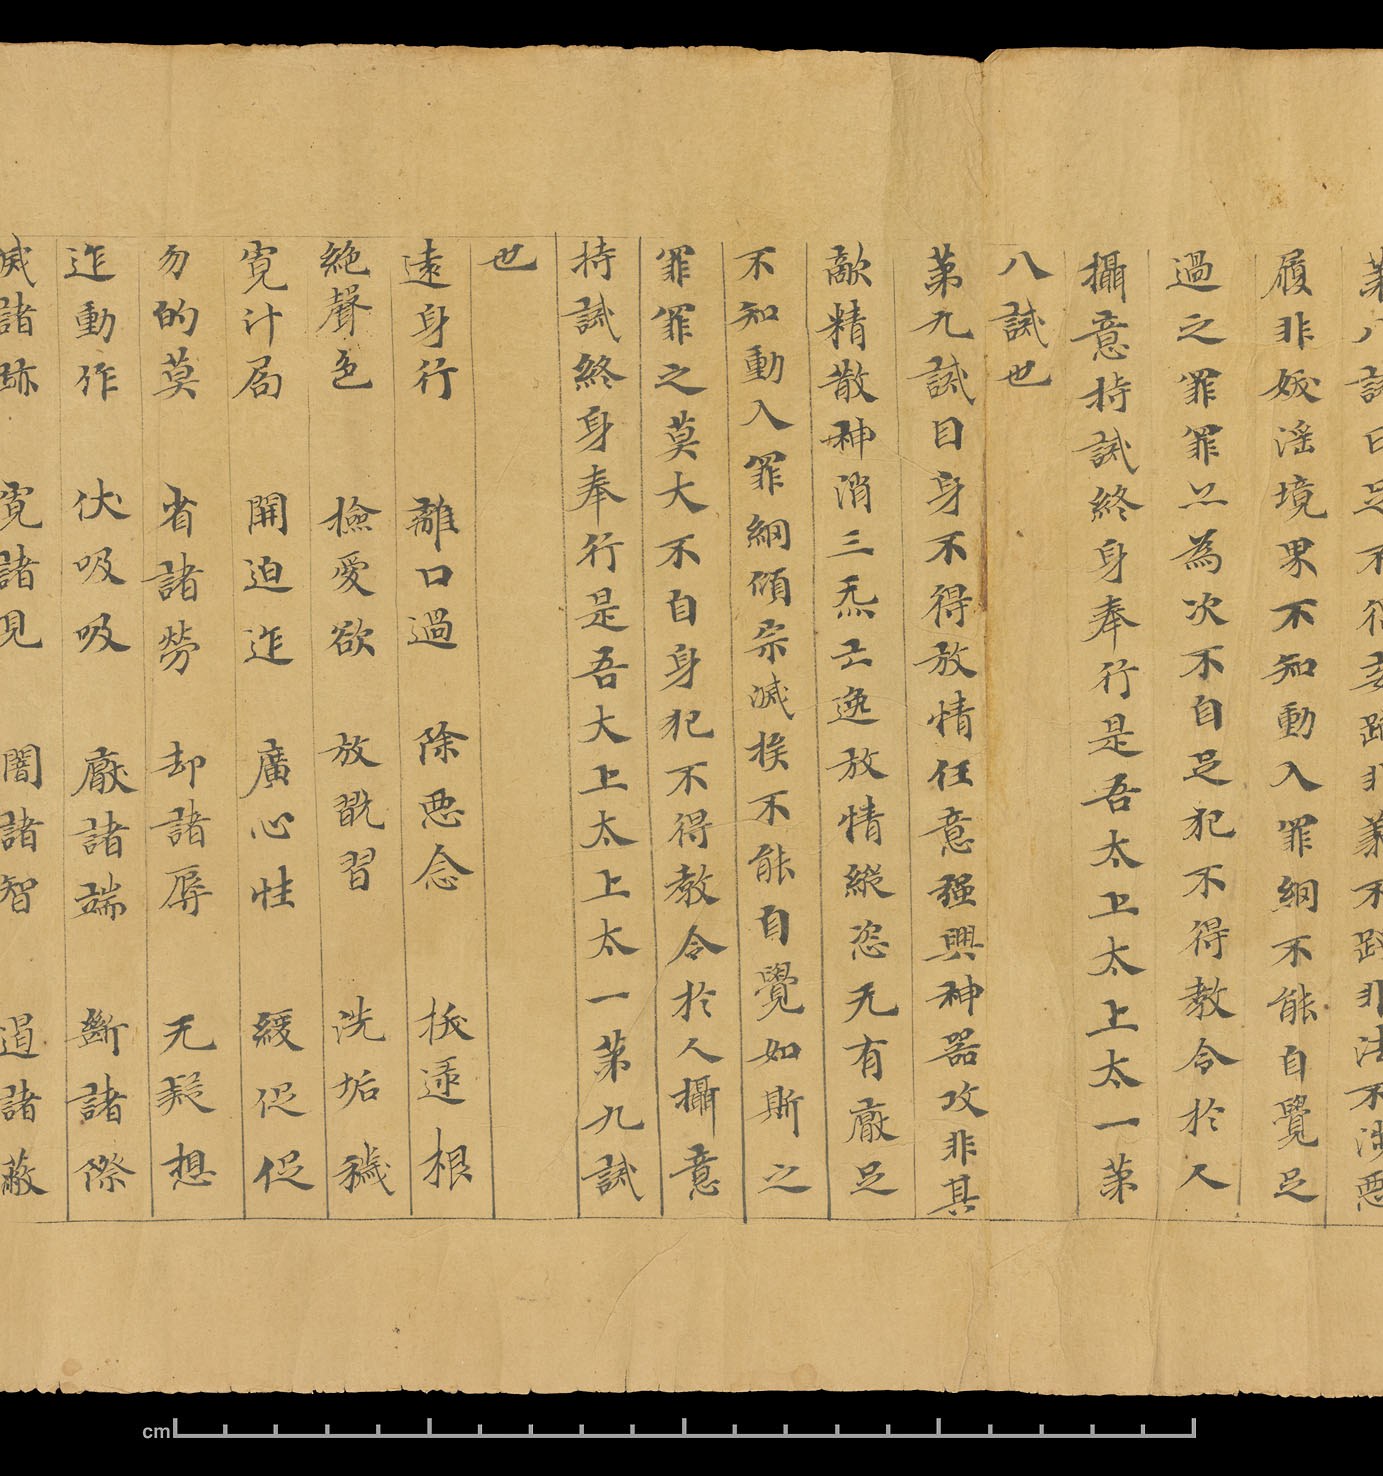 第八誡曰足不得妄蹈非義不踐非法不涉惡
履非妭滛境界不知動入罪綱不能自覺足
過之罪罪忩為次不自足犯不得教令於人
攝意持誡終身奉行是吾太上太上太一第
八誡也
第九誡目身不得放情任意強興神器攻非其
敵精散神消三炁亡逸放情縱恣无有厭足
不知動入罪綱傾宗滅族不能自覺如斯之
罪罪之莫大不自身犯不得教令於人攝意
持誡終身奉行是吾大上太上太一第九誡
也
遠身行 離口過 除惡念 拔逕根
絶聲色 撿愛欲 放翫習 洗垢穢
寬計局 開迫迮 廣心性 緩促促
勿的莫 省諸勞 却諸辱 无疑想
迮動作 伏吸吸 厭諸端 斷諸際
滅諸跡 寬諸見 闇諸智 道諸蔽
cm